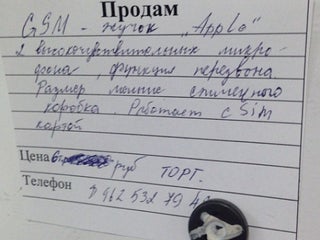 Продам
GSM - жучок „Apple"
2 высокочувствительных микро-
фона, функция перезвона
Размер меньше спичечного
коробка. Работает с Sim
картой
Цена руб ТОРГ.
Телефон 8 962 532 79 4